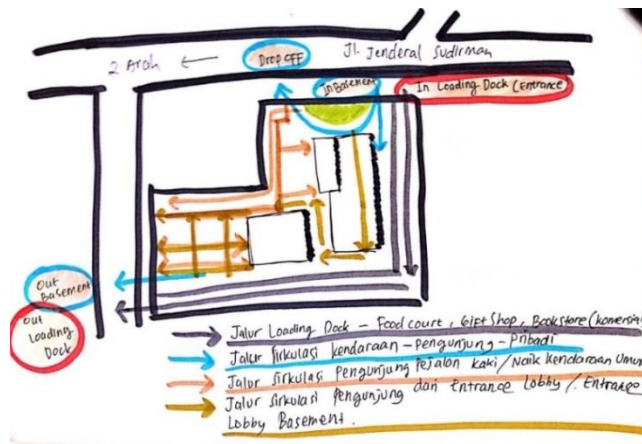 Jl. Jenderal Sudirman
2 Arah
Drop OFF
In Basement
In Loading Dock (Entrance)
Out
Basement
Out
Loading
Dock
Jalur Loading Dock - Food court, Gift Shop, Bookstore (komersial
Jalur Sirkulasi kendaraan - Pengunjung - Pribadi
Jalur Sirkulasi Pengunjung Pejalan kaki / Naik Kendaraan Umum
Jalur Sirkulasi Pengunjung dari Entrance Lobby / Entrance
Lobby Basement.